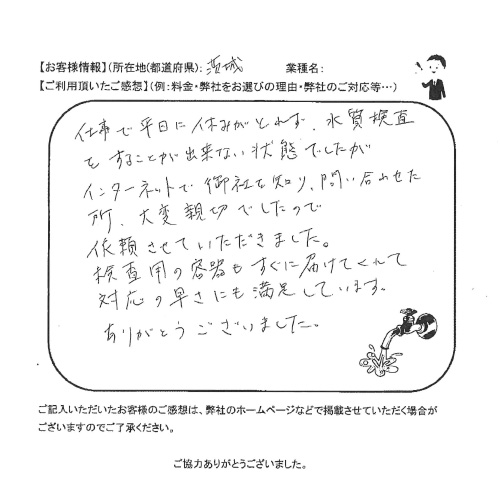 【お客様情報】(所在地(都道府県): 茨城 業種名:
【ご利用頂いたご感想】(例:料金・弊社をお選びの理由・弊社のご対応等…)
仕事で平日に休みがとれず、水質検査
をすることが出来ない状態でしたが
インターネットで御社を知り、問い合わせた
所、大変親切でしたので
依頼させていただきました。
検査用の容器もすぐに届けてくれて
対応の早さにも満足しています。
ありがとうございました。
ご記入いただいたお客様のご感想は、弊社のホームページなどで掲載させていただく場合が
ございますのでご了承ください。
ご協力ありがとうございました。